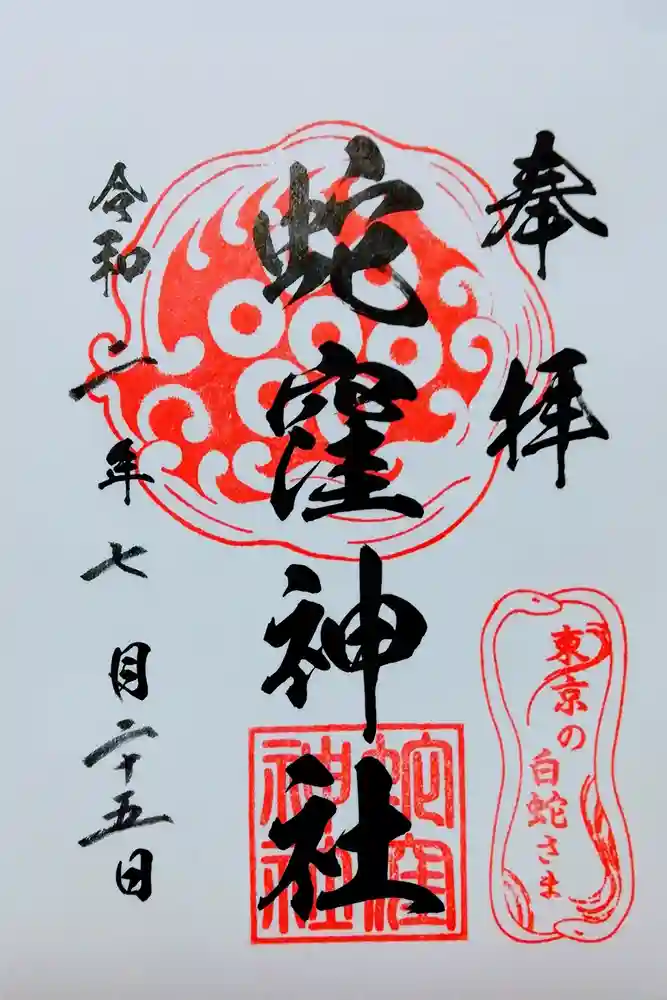 奉拝
蛇窪神社
令和二年七月二十五日
東京の
白蛇さま
蛇窪
神社